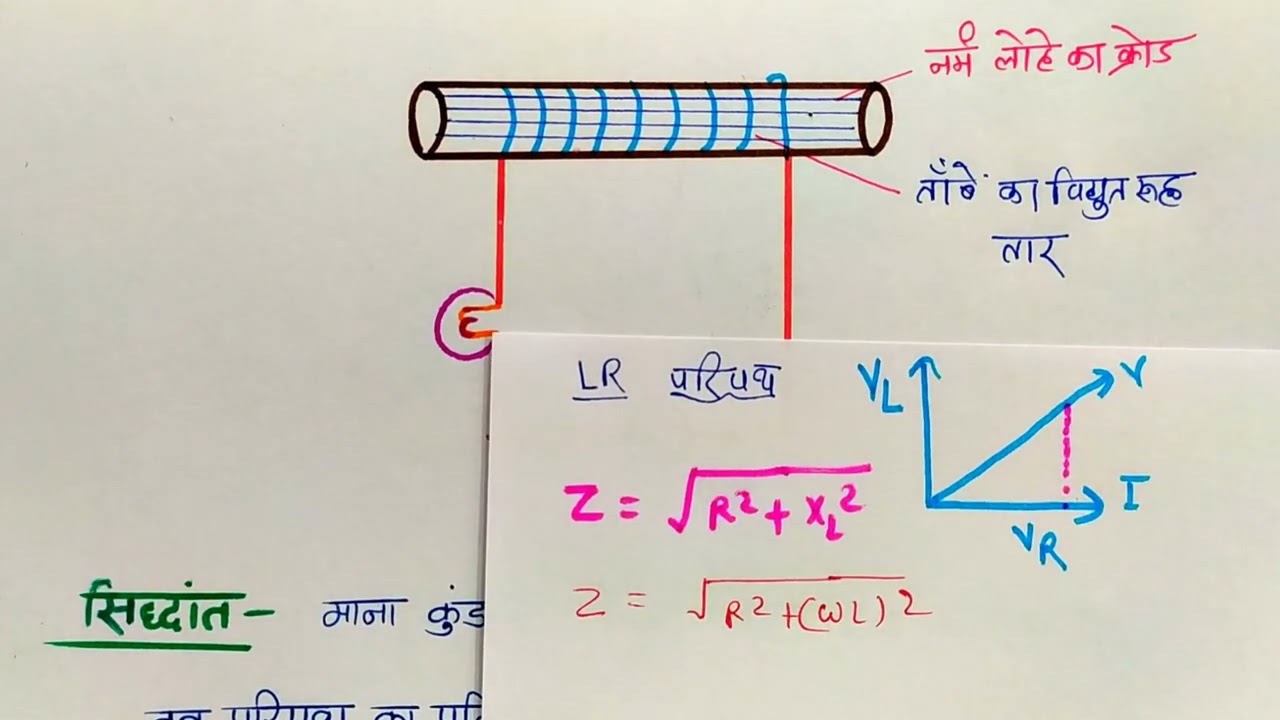 नर्म लोहे का क्रोड
ताँबें का विद्युत रूद्ध
तार
LR परिपथ
V_L
V
I
V_R
Z = √R² + X_L²
Z = √R² + (ωL)²
सिद्धांत - माना कुंड